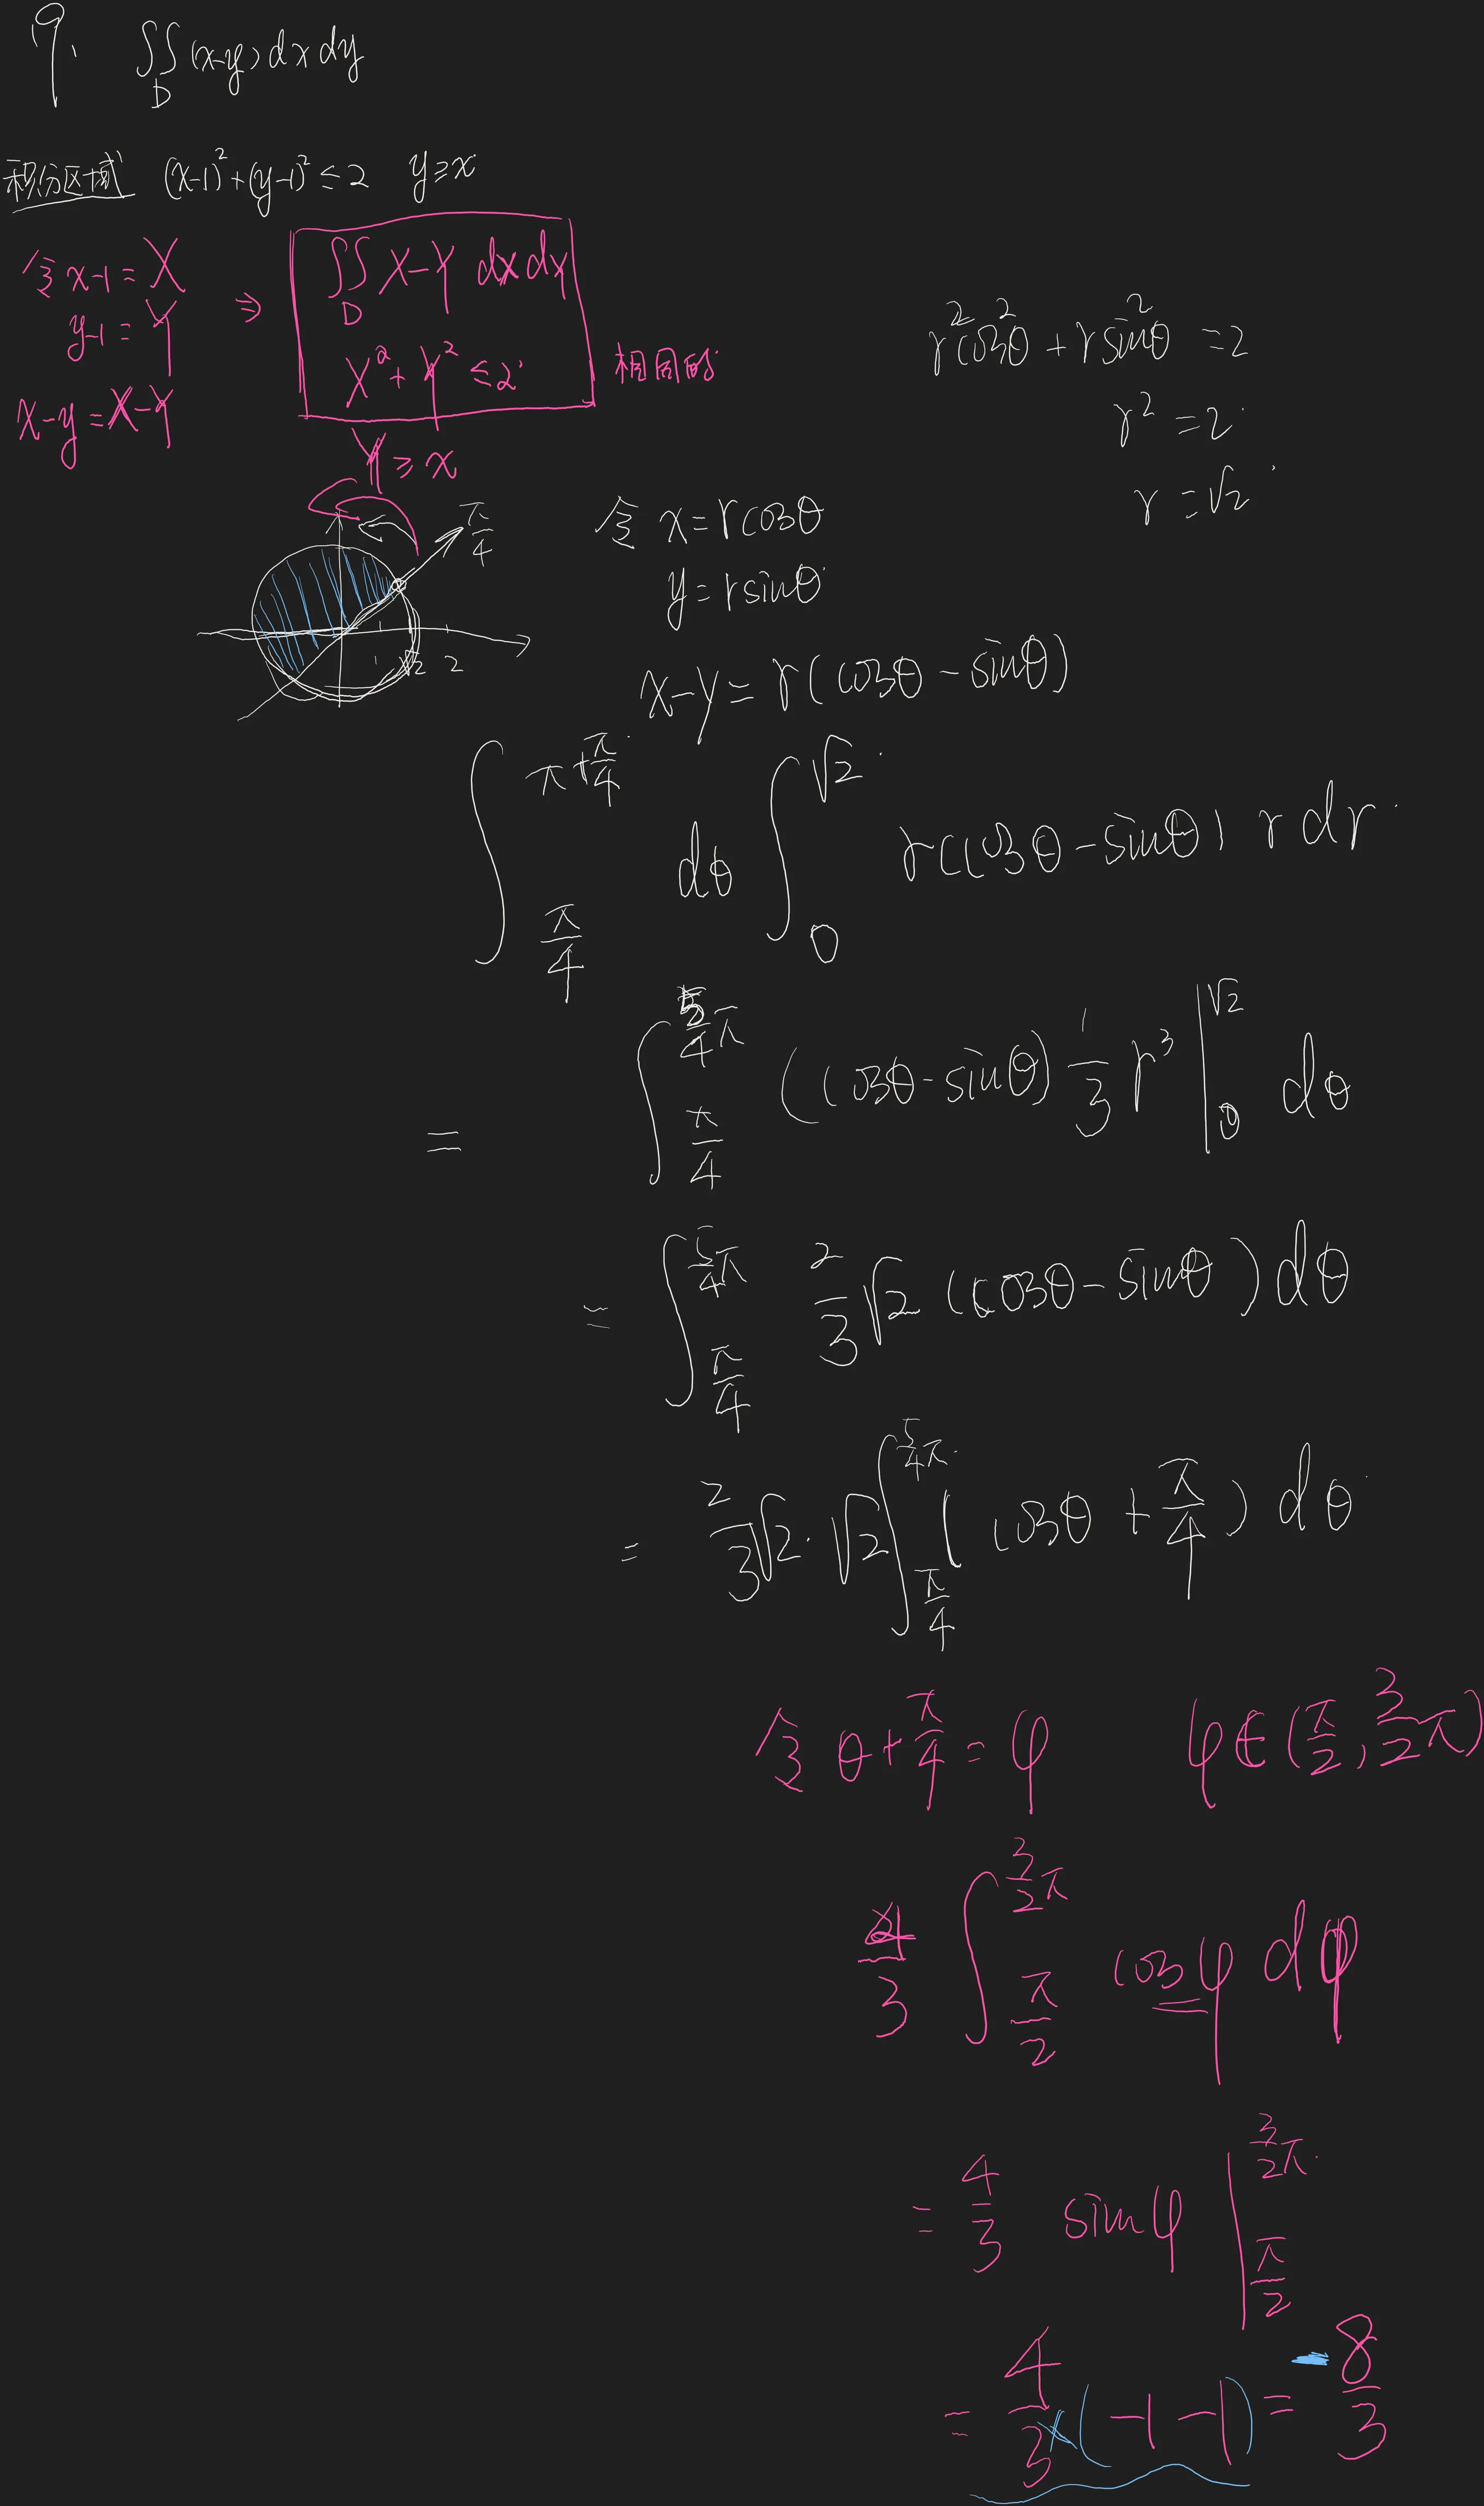 9. ∬_D (x-y) dxdy
积分区域 (x-1)²+(y-1)² ≤ 2 y≥x
令 x-1=X
y-1=Y
x-y=X-Y
⇒ ∬_D X-Y dxdy
X²+Y² ≤ 2
相同的
Y≥X
π/4
√2 2
r²cos²θ + r²sin²θ = 2
r² = 2
r = √2
令 x = rcosθ
y = rsinθ
x-y = r(cosθ-sinθ)
∫_{π/4}^{π+π/4} dθ ∫_0^{√2} r(cosθ-sinθ) r dr
= ∫_{π/4}^{5/4 π} (cosθ-sinθ) 1/3 r³ |_0^{√2} dθ
= ∫_{π/4}^{5/4 π} 2/3 √2 (cosθ-sinθ) dθ
= 2/3 √2 · √2 ∫_{π/4}^{5/4 π} (cosθ + π/4) dθ
令 θ+π/4 = φ φ∈(π/2, 3/2 π)
4/3 ∫_{π/2}^{3/2 π} cosφ dφ
= 4/3 sinφ |_{π/2}^{3/2 π}
= 4/3 (-1-1) = -8/3